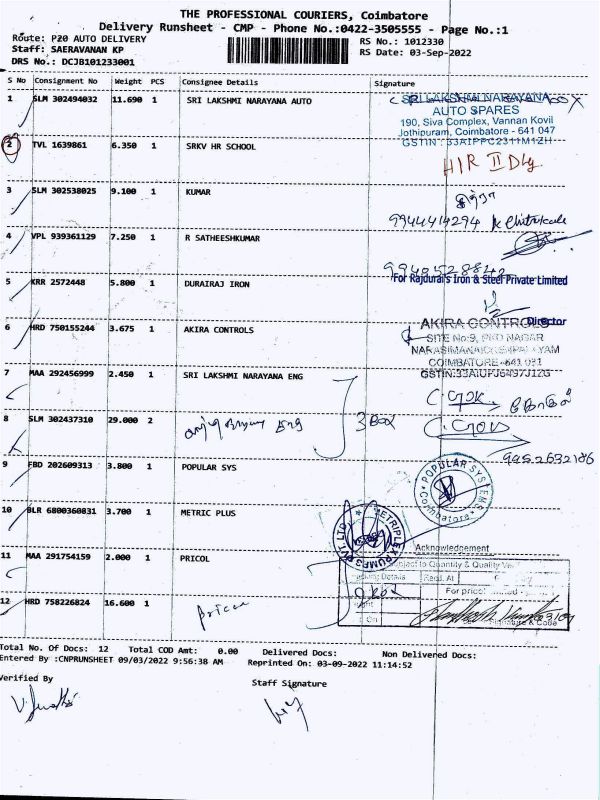 THE PROFESSIONAL COURIERS, Coimbatore
Delivery Runsheet - CMP - Phone No.:0422-3505555 - Page No.:1
Route: P20 AUTO DELIVERY
Staff: SAERAVANAN KP
DRS No.: DCJB101233001
RS No.: 1012330
RS Date: 03-Sep-2022
S No Consignment No Weight PCS Consignee Details Signature
1 SLM 302494032 11.690 1 SRI LAKSHMI NARAYANA AUTO
SRI LAKSHMI NARAYANA
AUTO SPARES
190, Siva Complex, Vannan Kovil
Jothipuram, Coimbatore - 641 047
2 TVL 1639861 6.350 1 SRKV HR SCHOOL
3 SLM 302538025 9.100 1 KUMAR
9944414294
4 VPL 939361129 7.250 1 R SATHEESHKUMAR
5 KRR 2572448 5.800 1 DURAIRAJ IRON
For Rajdurai's Iron & Steel Private Limited
Director
6 HRD 750155244 3.675 1 AKIRA CONTROLS
AKIRA CONTROLS
SITE No:9,
COIMBATORE - 641 031
7 MAA 292456999 2.450 1 SRI LAKSHMI NARAYANA ENG
8 SLM 302437310 29.000 2
3 Box
9952632186
9 FBD 202609313 3.800 1 POPULAR SYS
POPULAR SYSTEMS
Coimbatore
10 BLR 6800360831 3.700 1 METRIC PLUS
11 MAA 291754159 2.000 1 PRICOL
Acknowledgement
Subject to Quantity & Quality
Regd. At
For pricol
Signature & Code
12 HRD 758226824 16.600 1
Total No. Of Docs: 12 Total COD Amt: 0.00 Delivered Docs: Non Delivered Docs:
Entered By :CNPRUNSHEET 09/03/2022 9:56:38 AM Reprinted On: 03-09-2022 11:14:52
Verified By
Staff Signature